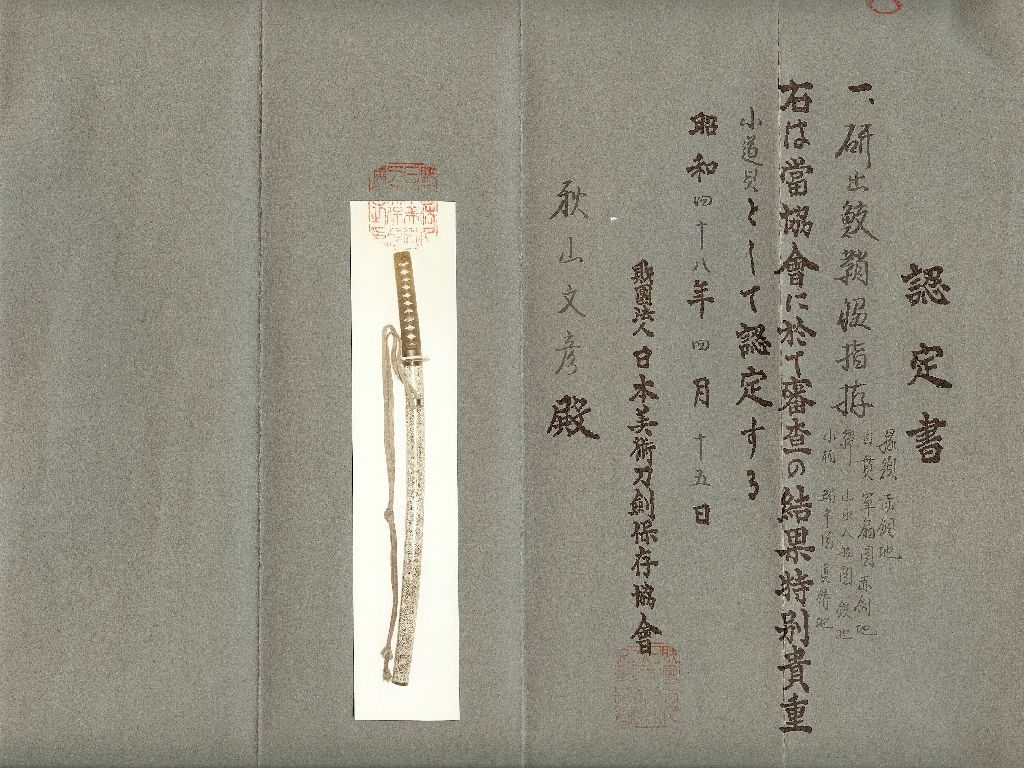 認定書
一、研出鮫鞘脇指拵
縁頭 赤銅地
目貫 軍扇図 赤銅地
鐔 山水人物図 鉄地
小柄 図 真鍮地
右は當協會に於て審査の結果特別貴重
小道具として認定する
昭和四十八年四月十五日
財團法人日本美術刀劍保存協會
秋山文彦殿